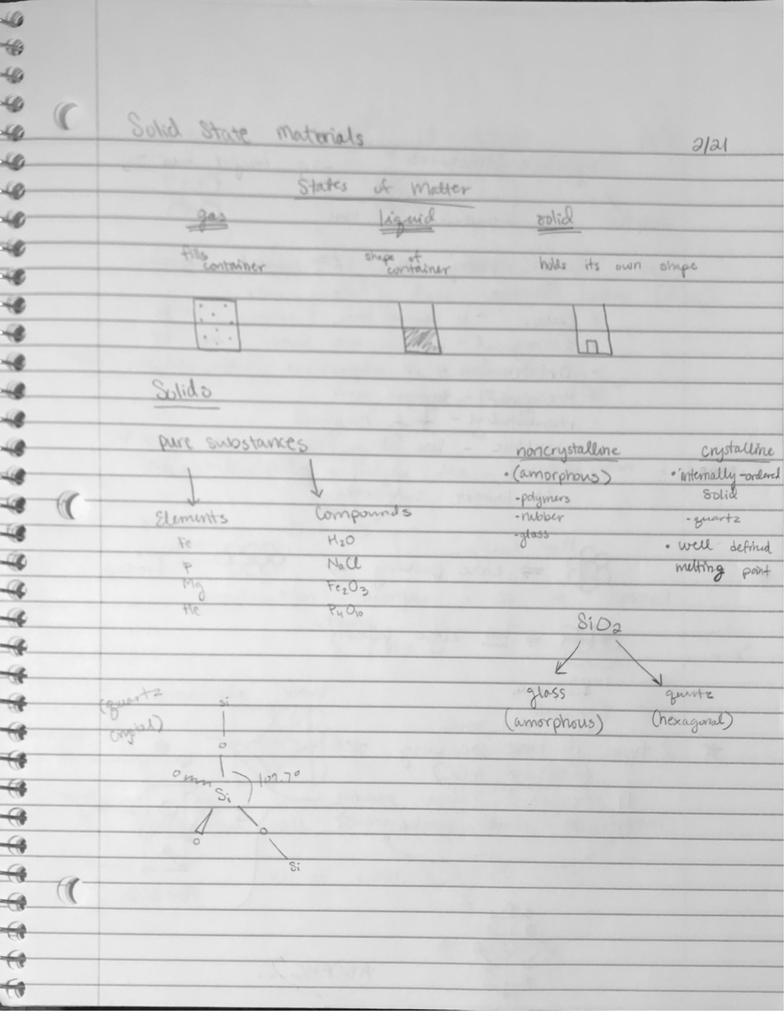 Solid State Materials
2/21
States of Matter
gas liquid solid
fills container
shape of container
holds its own shape
Solids
pure substances
Elements
Fe
P
Mg
He
Compounds
H₂O
NaCl
Fe₂O₃
P₄O₁₀
noncrystalline
• (amorphous)
- polymers
- rubber
- glass
crystalline
• internally-ordered
solid
- quartz
• well defined
melting point
SiO₂
glass
(amorphous)
quartz
(hexagonal)
(quartz
crystal)
Si
O
O
Si
O
O
Si